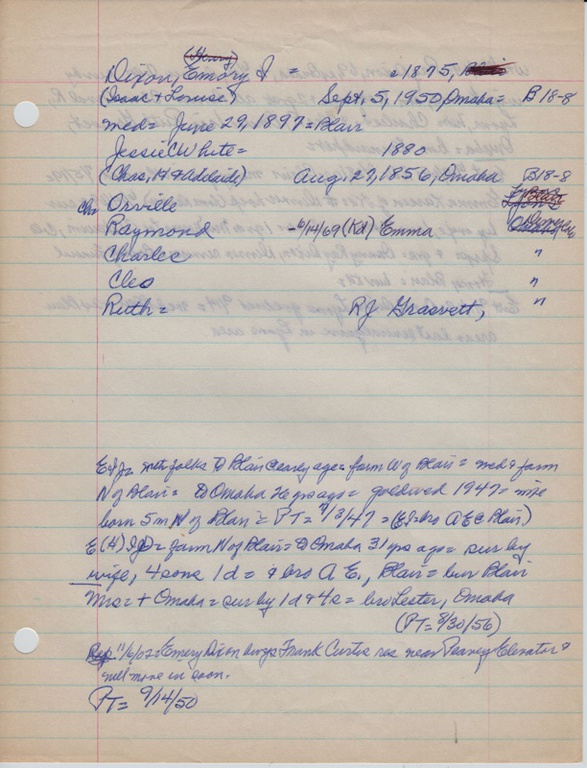 (Henry)
Dixon, Emory J = c1875,
(Isaac + Louise) Sept. 5, 1950, Omaha = B 18-8
med = June 29, 1897 = Blair
Jessie C White = 1880
(Chas. H & Adelaide) Aug. 27, 1856, Omaha B18-8
Ch: Orville Lyons
Raymond - 6/14/69 (Kd) Emma Omaha
Charles "
Cleo "
Ruth = R J Grasvett, "
E & J = with folks to Blair early age = farm W of Blair = med & farm
N of Blair = to Omaha yrs ago = gold wed 1947 = wife
born 5 m N of Blair = PT = 7/3/47 = (EJ = bro A E C Blair)
E (H) JD = farm N of Blair = to Omaha 31 yrs ago = sur by
wife, 4 sons 1 d = & bro A E., Blair = bur Blair
Mrs = + Omaha = sur by 1 d & 4 s = bro Lester, Omaha
(PT = 8/30/56)
11/6/02 = Emery Dixon buys Frank Curtis res near Peavey Elevator &
will move in soon.
PT = 9/14/50